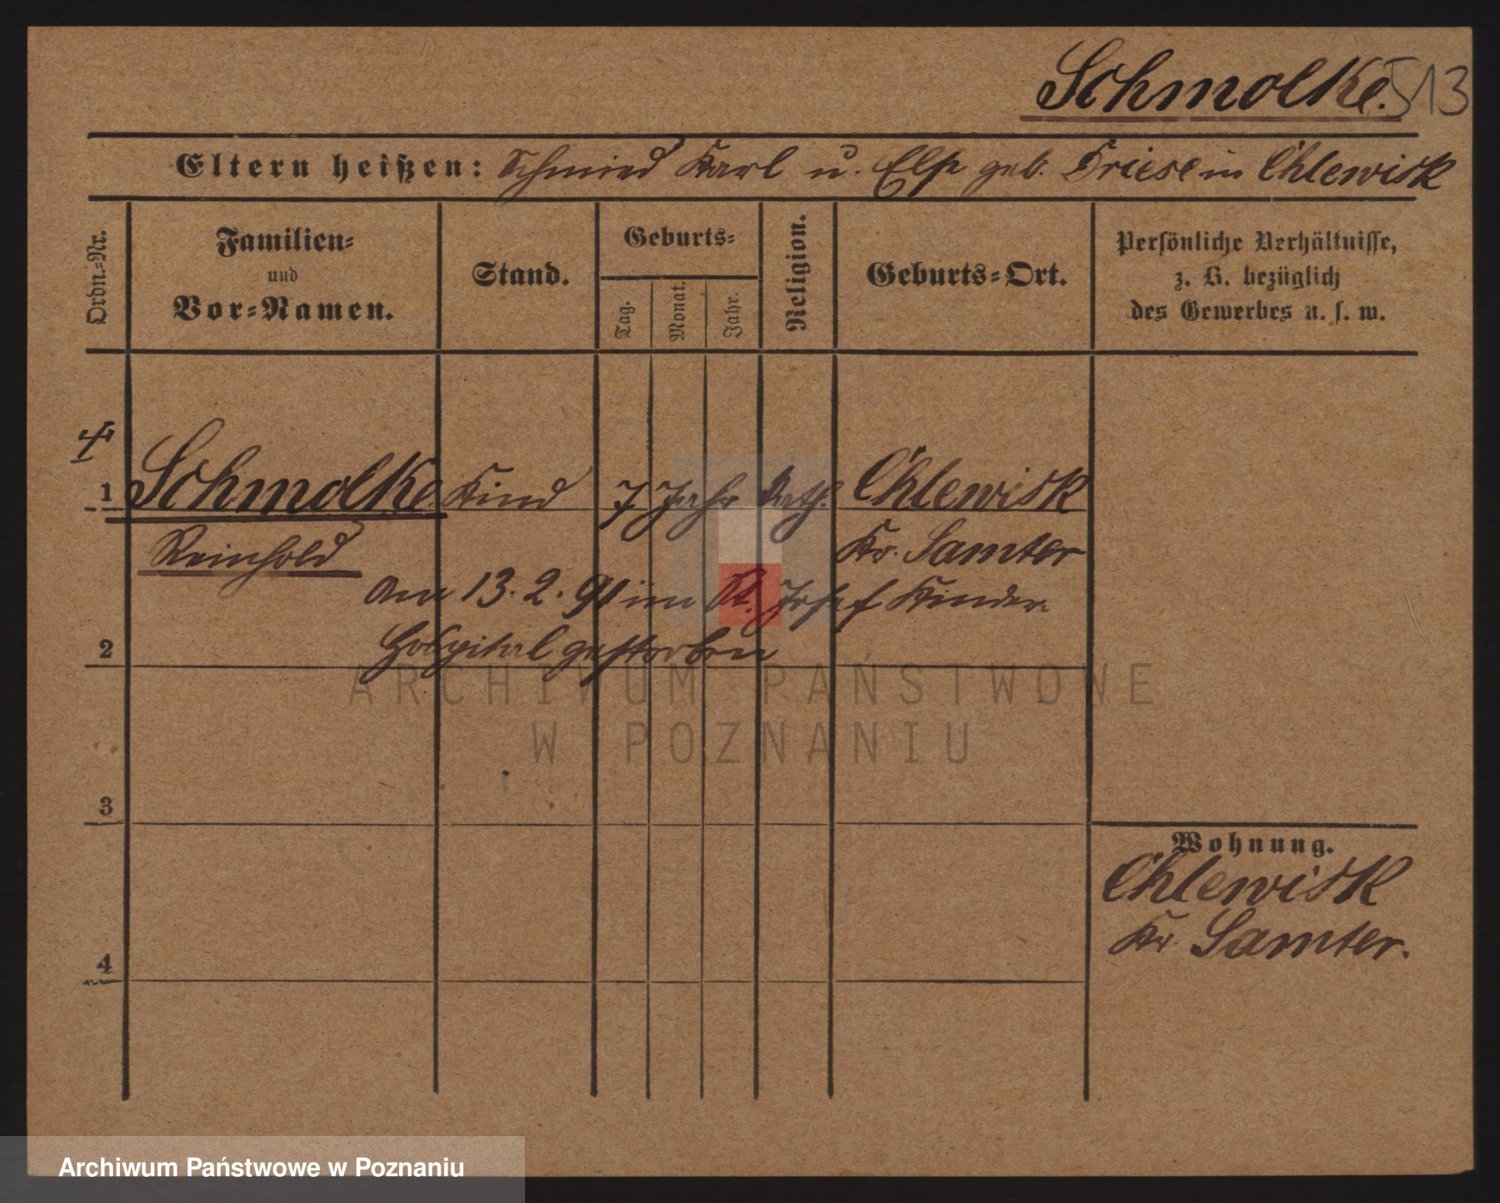 Schmolke. 513
Eltern heißen: Schmied Karl u. Else geb. Briese in Chlewisk
Ordn.-Nr.
Familien-
und
Vor-Namen.
Stand.
Geburts-
Tag.
Monat.
Jahr.
Religion.
Geburts-Ort.
Persönliche Verhältnisse,
z. B. bezüglich
des Gewerbes u. s. w.
1 Schmolke Kind 7 Jahr kath. Chlewisk
Reinhold Kr. Samter
Am 13. 2. 91 im St. Josef Kinder
2 Hospital gestorben
ARCHIWUM PAŃSTWOWE
W POZNANIU
3
Wohnung.
Chlewisk
Kr. Samter.
4
Archiwum Państwowe w Poznaniu